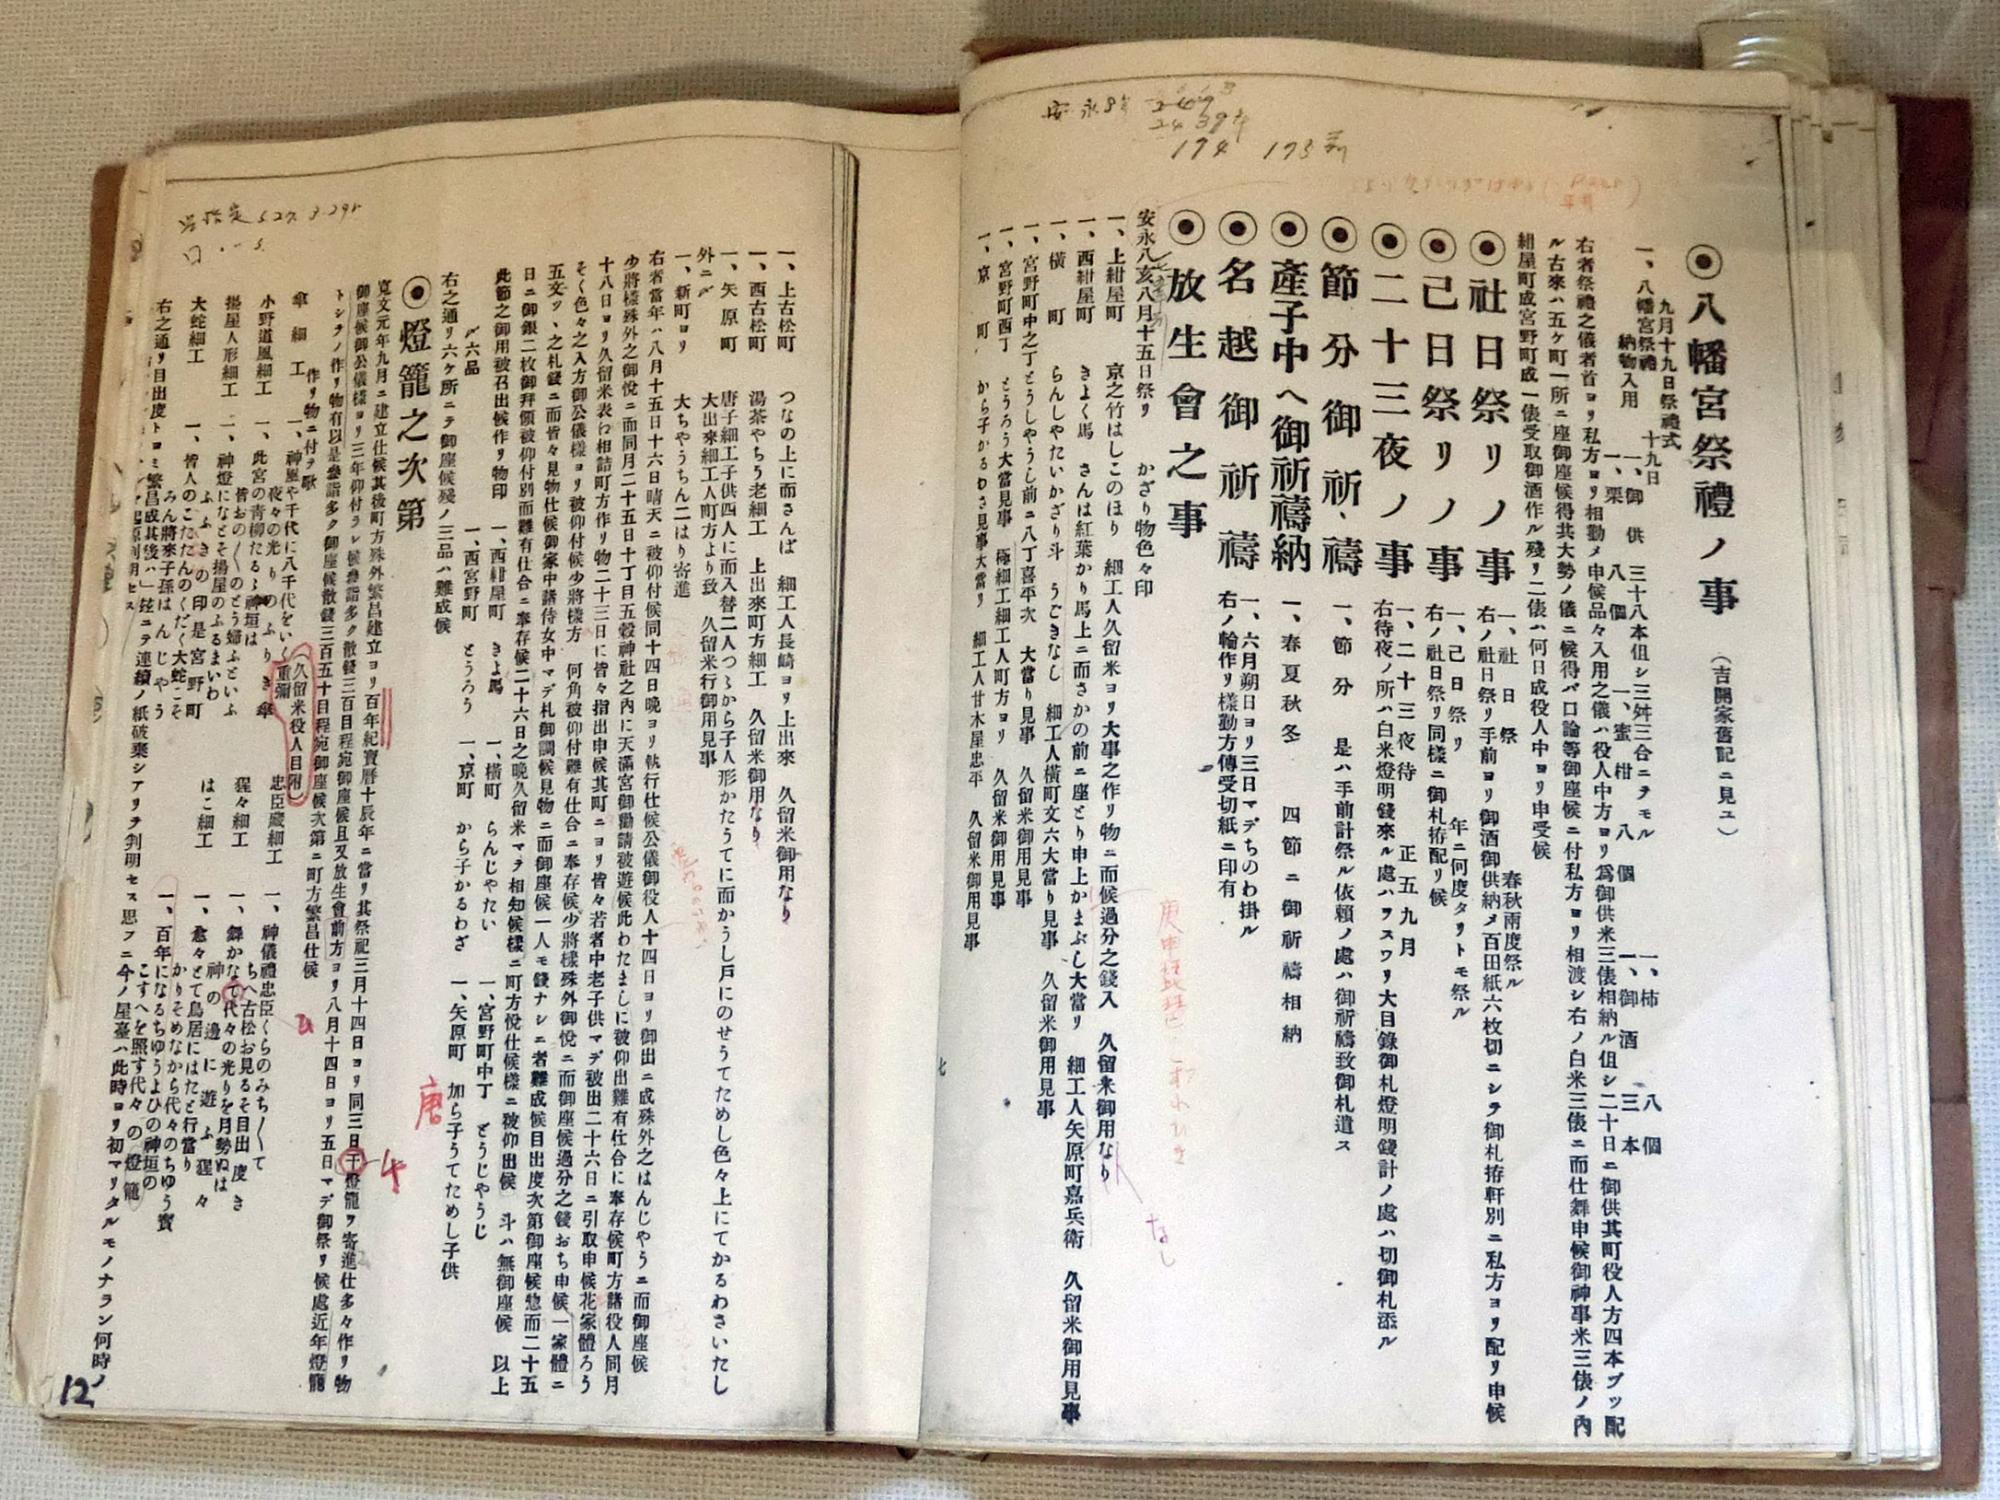 安永8年
2439年
174 173前
◉八幡宮祭禮ノ事 (吉開家舊記ニ見ユ)
九月十九日祭禮式
一、八幡宮祭禮 十九日
納物入用
一、御供 三十八本伹シ三舛三合ニテモル
一、栗 八個
一、蜜柑 八個
一、柿 八個
一、御酒 三本
右者祭禮之儀者首ヨリ私方ヨリ相勤メ申候品々入用之儀ハ役人中方ヨリ爲御供米三俵相納ル伹シ二十日ニ御供其町役人方四本ブッ配
ル古來ハ五ケ町一所ニ座御座候得共大勢ノ儀ニ候得バ口論等御座候ニ付私方ヨリ相渡シ右ノ白米三俵ニ而仕舞申候御神事米三俵ノ內
紺屋町成宮野町成一俵受取御酒作ル殘リ二俵ハ何日成役人中ヨリ申受候
◉社日祭リノ事
一、社日祭 春秋兩度祭ル
右ノ社日祭リ手前ヨリ御酒御供納メ百田紙六枚切ニシテ御札拵軒別ニ私方ヨリ配リ申候
◉己日祭リノ事
一、己日祭リ 年ニ何度タリトモ祭ル
右ノ社日祭リ同樣ニ御札拵配リ候
◉二十三夜ノ事
一、二十三夜待 正五九月
右待夜ノ所ハ白米燈明錢來ル處ハヲスワリ大目錄御札燈明錢計ノ處ハ切御札添ル
◉節分御祈禱
一、節分 是ハ手前計祭ル依賴ノ處ハ御祈禱致御札遣ス
◉產子中ヘ御祈禱納
一、春夏秋冬 四節ニ御祈禱相納
◉名越御祈禱
一、六月朔日ヨリ三日マデちのわ掛ル
右ノ輪作リ樣勤方傳受切紙ニ印有
◉放生會之事
安永八亥八月十五日祭リ かざり物色々印
一、上紺屋町 京之竹はしこのほり 細工人久留米ヨリ大事之作リ物ニ而候過分之錢入 久留米御用なり
一、西紺屋町 きよく馬 さんは紅葉かり馬上ニ而さかの前ニ座とり申上かまぶし大當リ 細工人矢原町嘉兵衛 久留米御用見事
一、橫町 らんしやたいかざり斗 うごきなし 細工人橫町文六大當り見事 久留米御用見事
一、宮野町中之丁とうしやうし前ニ八丁喜平次 大當り見事 久留米御用見事
一、宮野町西丁 とうろう大當見事 極細工細工人町方ヨリ 久留米御用見事
一、京町 から子かるわさ見事大當リ 細工人甘木屋忠平 久留米御用見事
七
なし
一、上古松町 つなの上に而さんば 細工人長崎ヨリ上出來 久留米御用なり
一、西古松町 湯茶やちう老細工 上出來町方細工 久留米御用なり
一、矢原町 唐子細工子供四人に而入替二人つゝから子人形かたうてに而かうし戸にのせうてためし色々上にてかるわさいたし
外ニメ 大出來細工人町方より致 久留米行御用見事
一、新町ヨリ 大ちやうちん二はり寄進
右者當年ハ八月十五日十六日晴天ニ被仰付候同十四日晚ヨリ執行仕候公儀御役人十四日ヨリ御出ニ成殊外之はんじやうニ而御座候
少將樣殊外之御悅ニ而同月二十五日十丁日五穀神社之內に天滿宮御勸請被遊候此わたましに被仰出難有仕合に奉存候町方諸役人同月
十八日ヨリ久留米表ゟ相詰町方作リ物二十三日に皆々指出申候其町ニヨリ皆々若者中老子供マデ被出二十六日ニ引取申候花家體ろう
そく色々之入方御公儀樣ヨリ被仰付候少將樣方 何角被仰付難有仕合ニ奉存候少將樣殊外御悅ニ而御座候過分之錢おち申候一家體ニ
五文ッヽ之札錢ニ而皆々見物仕候御家中諸侍女中マデ札御調候見物ニ而御座候一人モ錢ナシニ者難成候目出度次第御座候惣而二十五
日ニ御銀二枚御拜領被仰付別而難有仕合ニ奉存候二十六日之晚久留米マデ相知候樣ニ町方悅仕候樣ニ被仰出候 斗ハ無御座候 以上
此節之御用被召出候作リ物印
一、西紺屋町 きよ馬
一、橫町 らんじやたい
一、宮野町中丁 とうじやうじ
〆六品
一、西宮野町 とうろう
一、京町 から子かるわざ
一、矢原町 加ら子うてためし子供
右之通リ六ケ所ニテ御座候殘ノ三品ハ難成候
唐
◉燈籠之次第
寬文元年九月ニ建立仕候其後町方殊外繁昌建立ヨリ百年紀寶曆十辰年ニ當リ其祭祀三月十四日ヨリ同三日千燈籠ヲ寄進仕多々作リ物
御座候御公儀樣ヨリ三年仰付ラレ候參詣多ク散錢三百目程宛御座候且又放生會前方ヨリ八月十四日ヨリ五日マデ御祭リ候處近年燈籠
トシテノ作リ物有以是參詣多ク御座候散錢三百五十目程宛御座候次第ニ町方繁昌仕候
作リ物ニ付テ歌 (久留米役人目附)重彌
傘細工 一、神屋や千代に八千代をいく
夜々の光りのふりき傘
小野道風細工 一、此宮の靑柳たるゝ神垣は
皆おの〳〵のどう婦ふといふ
揚屋人形細工 一、神燈になどとそ揚屋のふるまいわ
ふふきの印是宮野町
大蛇細工 一、皆人のこたたんのくだく大蛇こそ
みん將來子孫はんじやう
忠臣藏細工 一、神儀禮忠臣くらのみち〳〵て
ちへ古松お見るそ目出度き
猩々細工 一、舞かなて代々の光りを月勢ぬは
神の邊に遊ふ猩々
はこ細工 一、愈々とて鳥居にはたと行當り
かりそめなから代々のちゆう寶
一、百年になるちゆうよひの神垣の
こすへを照す代々の燈籠
右之通リ目出度トヨミ繁昌成其後ハ」玆ニテ連續ノ紙破棄シアリテ判明セス思フニ今ノ屋臺ハ此時ヨリ初マリタルモノナラン何時ノ
12